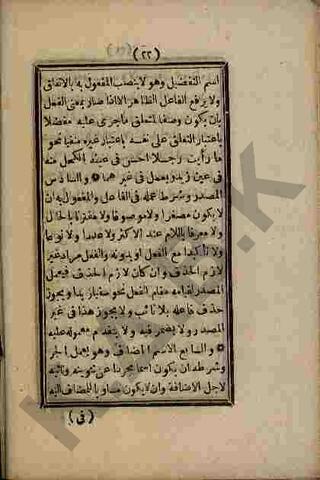 (٢٢)
اسم التفضيل وهو لا ينصب المفعول به بالاتفاق
ولا يرفع الفاعل الظاهر الا اذا صار بمعنى الفعل
بان يكون وصفا لمتعلق ما جرى عليه مفضلا
باعتبار التعلق على نفسه باعتبار غيره منفيا نحو
ما رأيت رجلا احسن فى عينه الكحل منه
فى عين زيد ويعمل فى غيرهما ۞ والسادس
المصدر وشرط عمله فى الفاعل والمفعول به ان
لا يكون مصغرا ولا موصوفا ولا مقترنا بالحال
ولا معرفا باللام عند الاكثر ولا عددا ولا نوعا
ولا تأكيدا مع الفعل او بدونه والفعل مراد غير
لازم الحذف وان كان لازم الحذف فيعمل
المصدر لقيامه مقام الفعل نحو سقيا زيدا ويجوز
حذف فاعله بلا نائب ولا يجوز هذا فى غير
المصدر ولا يضمر فيه ولا يتقدم معموله عليه
۞ والسابع الاسم المضاف وهو يعمل الجر
وشرطه ان يكون اسما مجردا عن تنوينه ونائبه
لاجل الاضافة وان لا يكون مساويا للمضاف اليه
(فى)